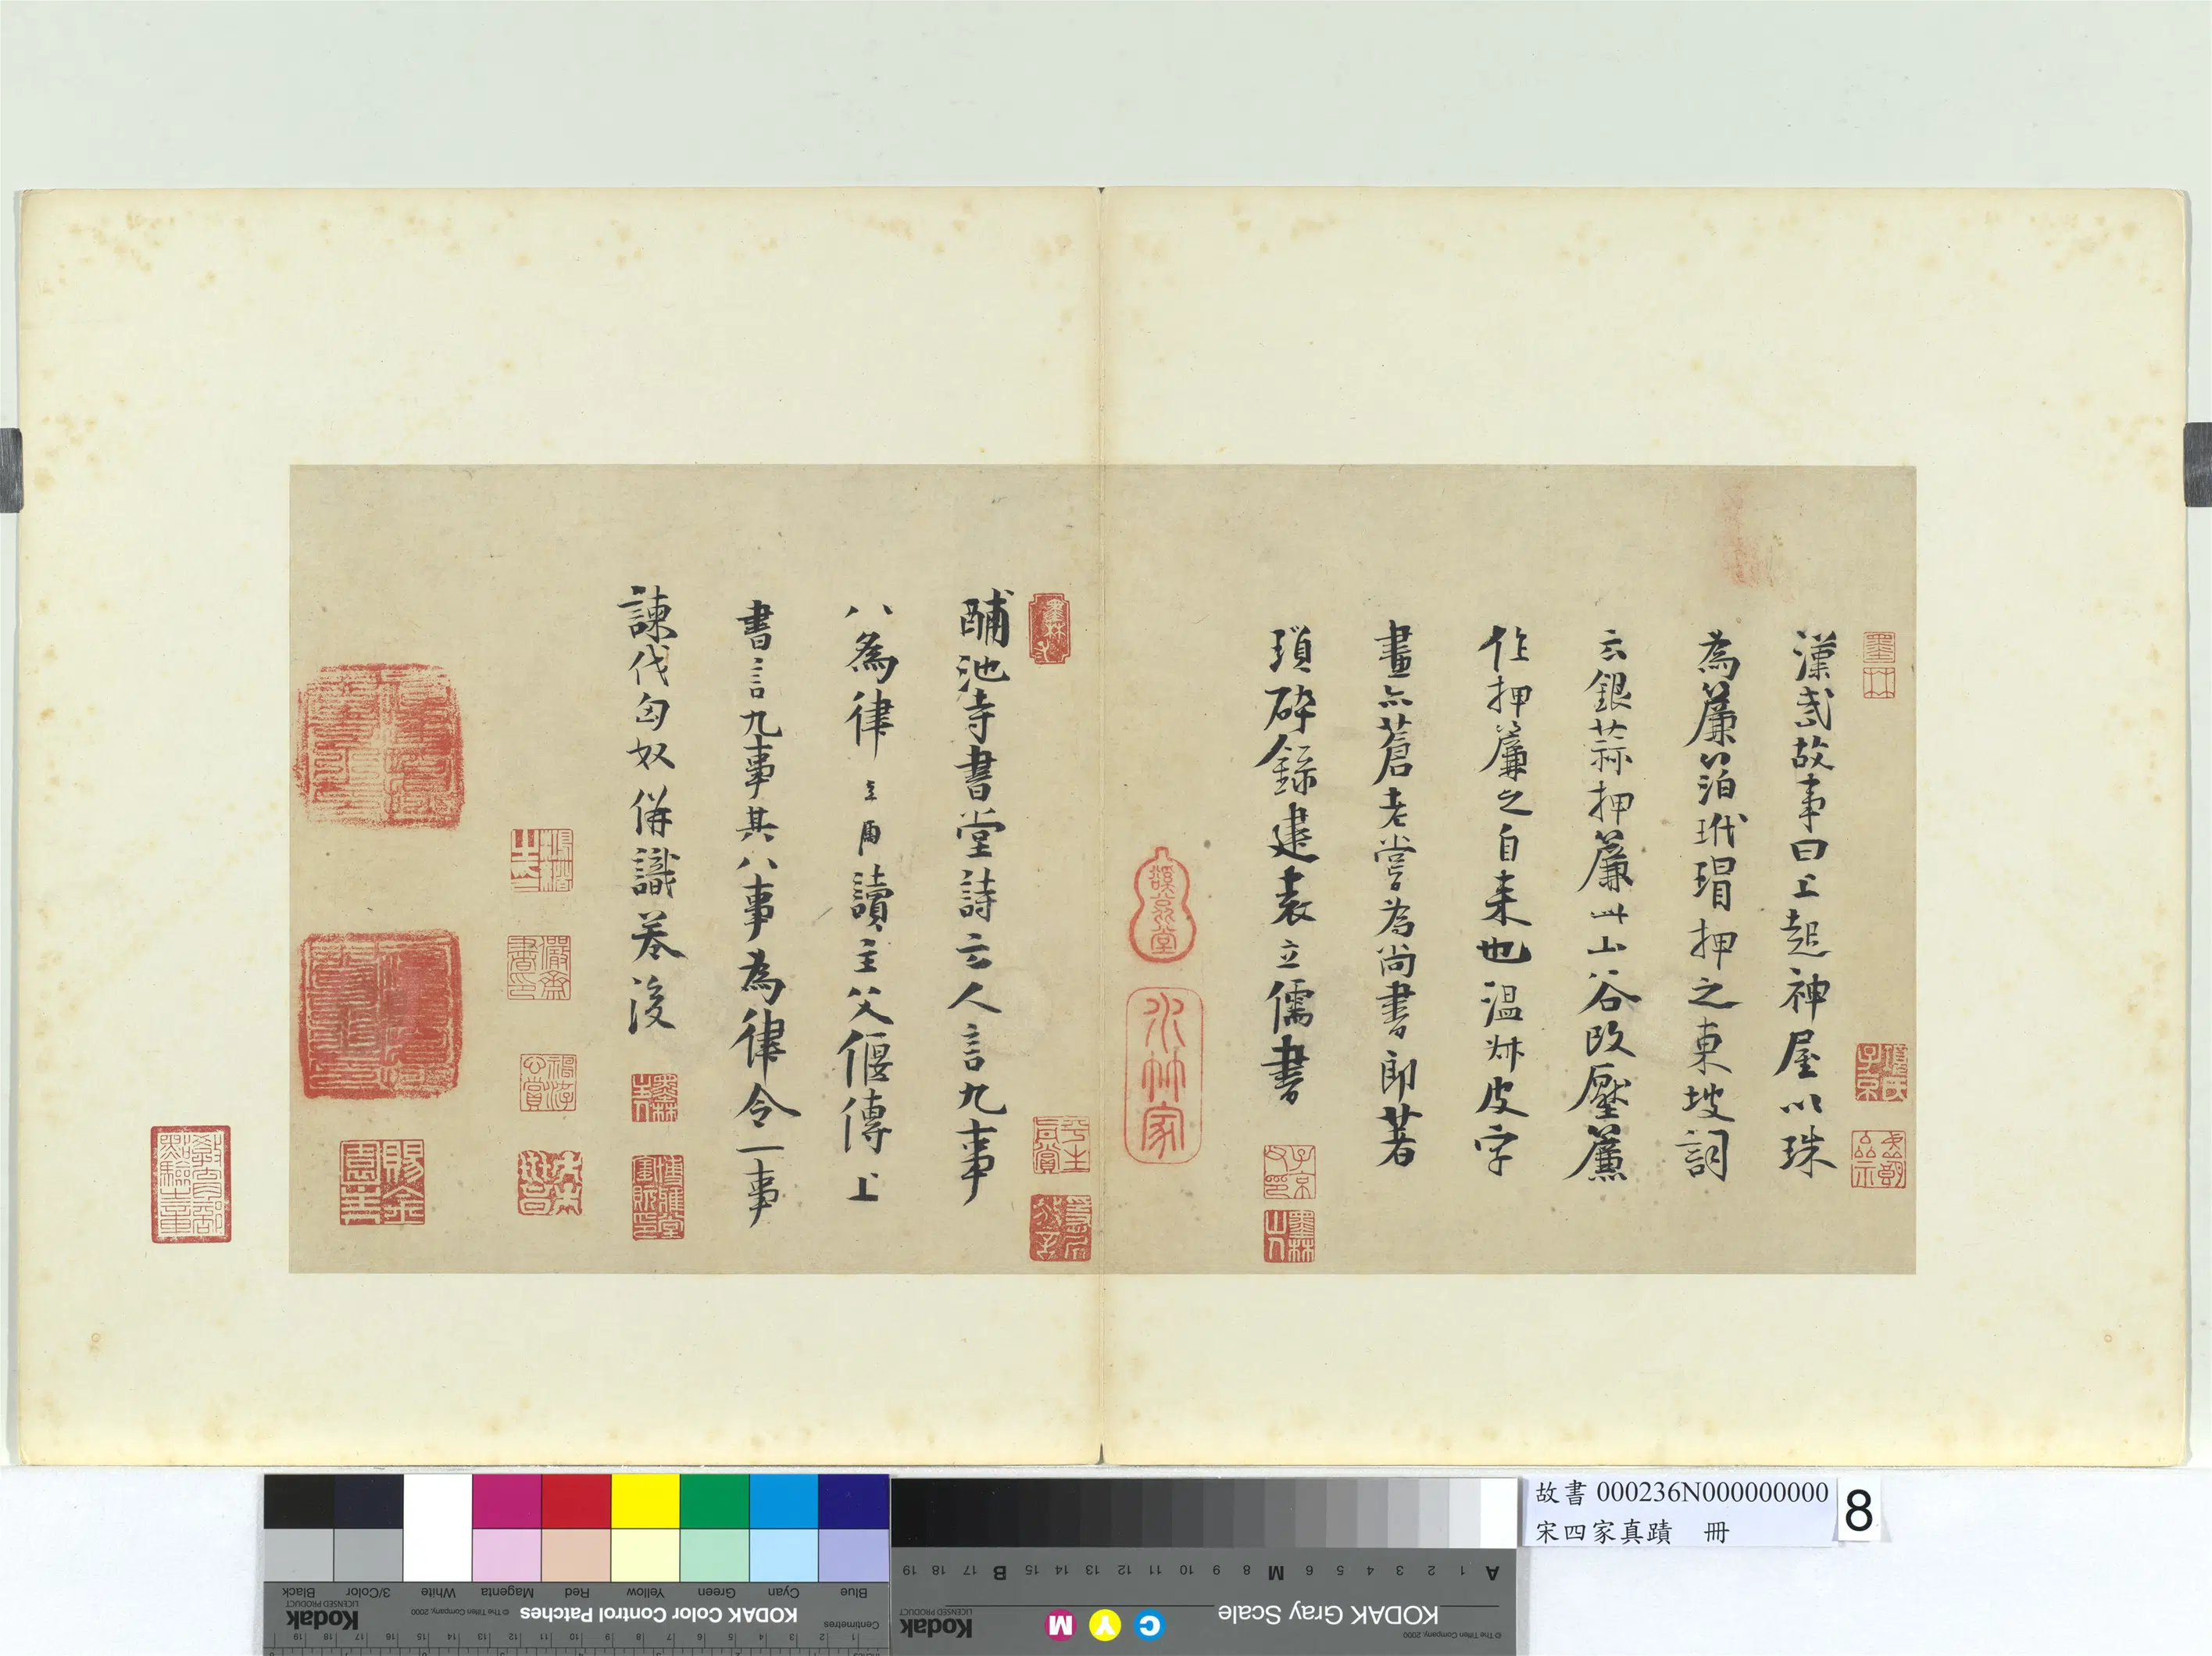 漢武故事曰上起神屋以珠
為簾箔玳瑁押之東坡詞
云銀蒜押簾此山谷改壓簾
作押簾之自来也温州皮字
畫亦蒼老嘗為尚書郎著
瑣碎錄建袁立儒書
酺池寺書堂詩云人言九事
八為律
讀主父偃傳上
書言九事其八事為律令一事
諫伐匈奴併識卷後
墨林
子京
水竹家
墨林山人
故書 000236N000000000
宋四家真蹟 冊
8
KODAK Color Control Patches
© The Tiffen Company, 2000
Kodak
LICENSED PRODUCT
Centimetres
Blue Cyan Green Yellow Red Magenta White 3/Color Black
KODAK Gray Scale
C Y M
Kodak
LICENSED PRODUCT
© The Tiffen Company, 2000
A 1 2 3 4 5 6 M 8 9 10 11 12 13 14 15 B 17 18 19